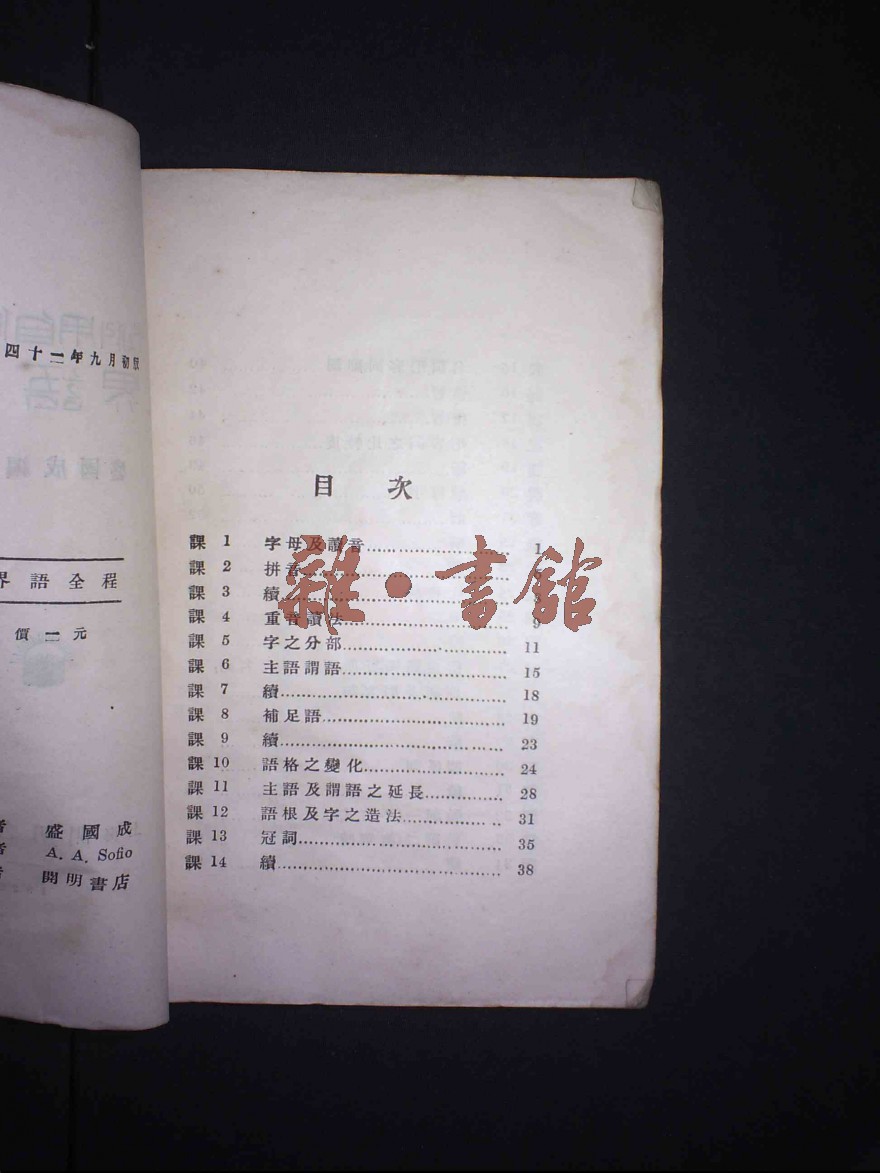 四十二年九月初版
界語全程
價一元
盛國成
A. A. Sofio
開明書店
目 次
課 1 字母及讀音 1
課 2 拼音
課 3 續
課 4 重音讀法 9
課 5 字之分部 11
課 6 主語謂語 15
課 7 續 18
課 8 補足語 19
課 9 續 23
課 10 語格之變化 24
課 11 主語及謂語之延長 28
課 12 語根及字之造法 31
課 13 冠詞 35
課 14 續 38
雜·書館